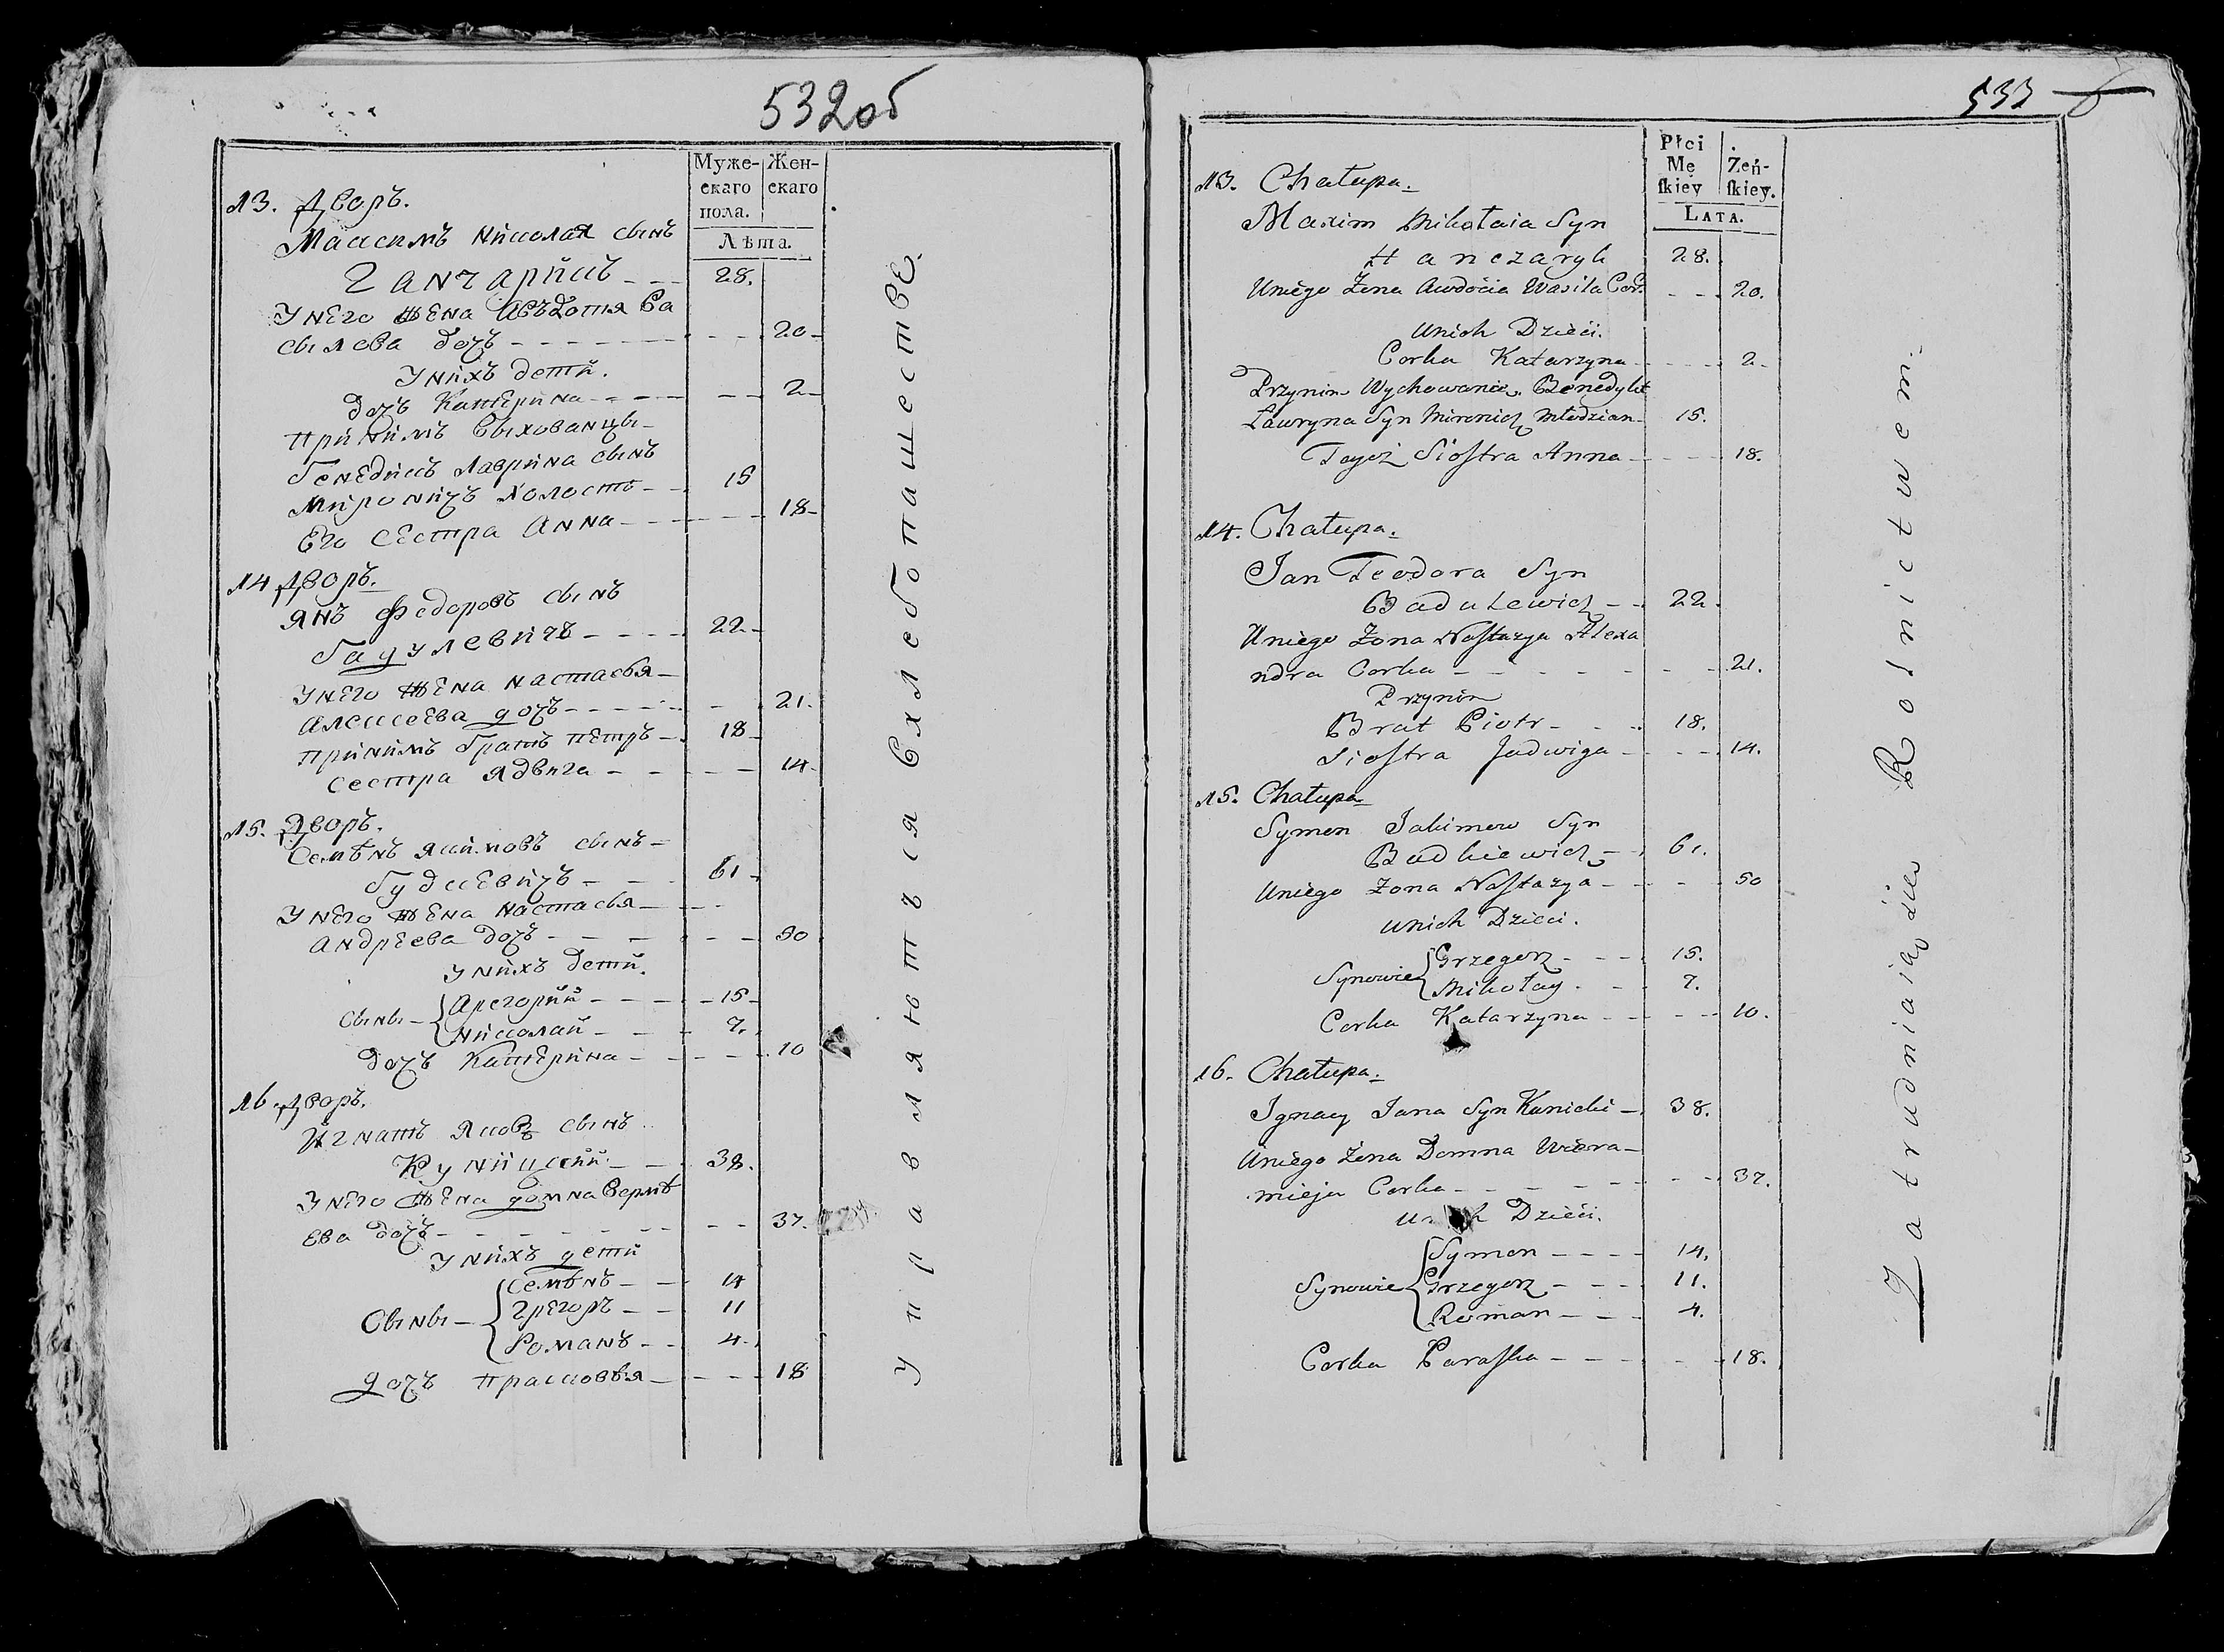 532об
Муже-
скаго
пола.
Жен-
скаго
Лѣта.
13. Дворъ.
Максимъ Николая сынъ
Ганчарикъ - - 28.
У него жена Авъдотия Ва
сылева дочъ - - - 20
У нихъ дети.
дочъ Катерина - - - 2
принилъ выхованцы
бенедикъ Лаврина сынъ
Мироничъ холостъ - - 15
Его сестра Анна - - - 18
14 Дворъ.
Янъ Федоровъ сынъ
бадулевичъ - - - 22
У него жена настасья
Алексеева дочъ - - - 21.
принилъ братъ петръ - 18
сестра Ядвига - - - 14
15. Дворъ.
Семѣнъ Якимовъ сынъ
будкевичъ - - - 61
У него жена настасья - -
Андреева дочъ - - - 50
У нихъ дети.
сыны Арегорий - - - 15
николай - - 7.
дочъ Катерина - - - 10
16. Дворъ.
Игнатъ Яковъ сынъ
Куницкий - - 38.
У него жена домна Вермѣ
ева дочъ - - - 37.
У нихъ дети
Сыны Семѣнъ - - 14
Грегоръ - - 11
Романъ - - 4
дочъ прасковья - - - 18
Управляютъся Въхлебопашестве.
533
Płci
Mę
ſkiey
Żeń-
ſkiey.
LATA.
13. Chałupa.
Maxim Mikołaia Syn
Hanczaryk 28.
Uniego Żona Awdocia Wasila Cor: - - 20.
Unich Dzieci.
Corka Katarzyna - - - 2
Przynim Wychowanie. Benedykt
Ławryna Syn Mironicz Młodzian - 15.
Tegoż Siostra Anna - - - 18.
14. Chałupa.
Jan Teodora Syn
Badulewicz - - 22.
Uniego Żona Nastazya Alexa
ndra Corka - - - 21.
Przynim
Brat Piotr - - - 18.
Siostra Jadwiga - - - 14.
15. Chałupa
Symon Jakimow Syn
Budkiewicz - - 61.
Uniego Żona Nastazya - - - 50
Unich Dzieci.
Synowie Grzegorz - - - 15.
Mikołay. - - 7.
Corka Katarzyna - - - 10.
16. Chałupa.
Ignacy Jana Syn Kunicki - 38.
Uniego Żona Domna Wiera-
mieja Corka - - - 37.
Unich Dzieci.
Synowie Symon - - - 14.
Grzegorz - - - 11.
Roman - - - 4.
Corka Paraska - - - 18.
Zatrudniaią śie Rolnictwem.